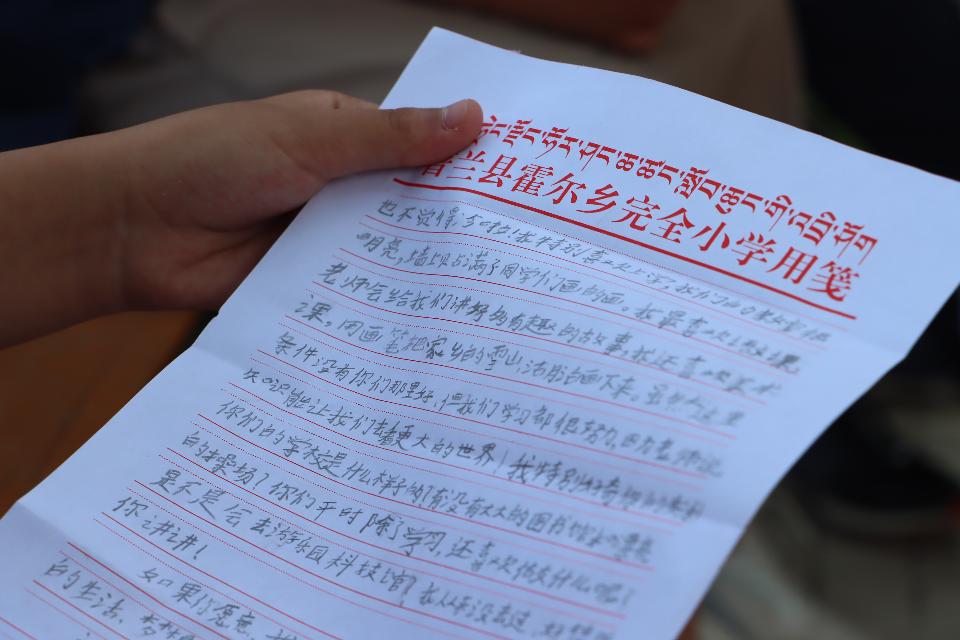 普兰县霍尔乡完全小学用笺
也不觉得冷啦！我特别喜欢上学，我们的教室
明亮，墙上贴满了同学们画的画。我最喜欢语文课，
老师会给我们讲好多有趣的故事，我还喜欢美术
课，用画笔把家乡的雪山、湖泊画下来。虽然这里
条件没有你们那里好，但我们学习都很努力，因为老师说
知识能让我们去看更大的世界！我特别好奇
你们的学校是什么样子的？有没有大大的图书馆和漂亮
的操场？你们平时除了学习，还喜欢做些什么呢？
是不是会去游乐园、科技馆？我从来没去过，
你讲讲！
如果你愿意，
的生活、